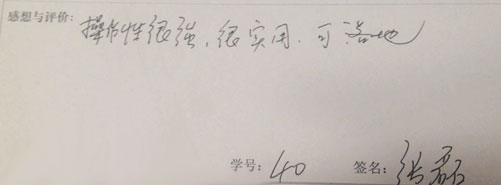 感想与评价：
操作性很强，很实用，可落地
学号：40 签名：张磊